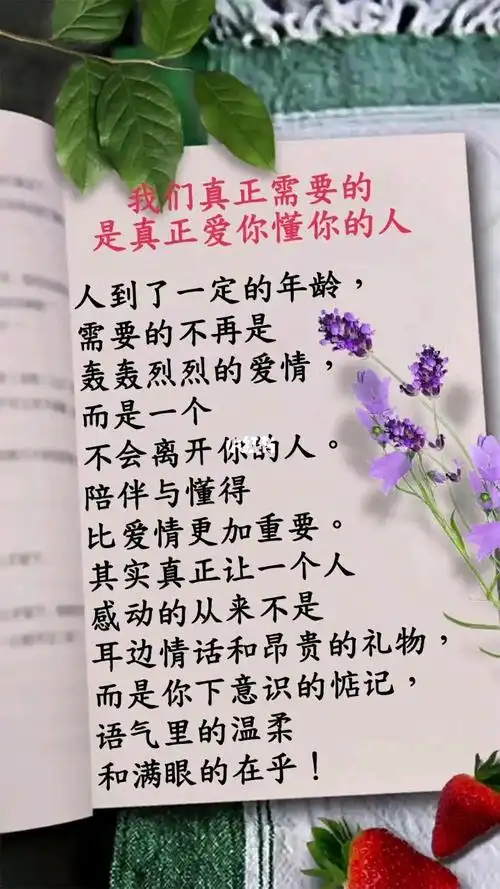 我们真正需要的
是真正爱你懂你的人
人到了一定的年龄，
需要的不再是
轰轰烈烈的爱情，
而是一个
不会离开你的人。
陪伴与懂得
比爱情更加重要。
其实真正让一个人
感动的从来不是
耳边情话和昂贵的礼物，
而是你下意识的惦记，
语气里的温柔
和满眼的在乎！